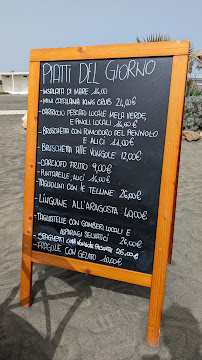 PIATTI DEL GIORNO
- INSALATA DI MARE 14,00
- MINI CATALANA KING CRUB 24,00€
- CARPACCIO PESCATO LOCALE MELA VERDE,
E PINOLI LOCALI 14,00€
- BRUSCHETTA CON POMODORO DEL PIENNOLO
E ALICI 14,00€
- BRUSCHETTA ALLE VONGOLE 12,00€
- CARCIOFO FRITTO 9,00€
- PUNTARELLE, ALICI 14,00€
- TAGLIOLINI CON LE TELLINE 26,00€
- LINGUINE ALL'ARAGOSTA 40,00€
- TAGLIATELLE CON GAMBERI LOCALI E
ASPARAGI SELVATICI 26,00€
- SPAGHETTI CON VONGOLE 26,00€
- FRAGOLE CON GELATO 10,00€